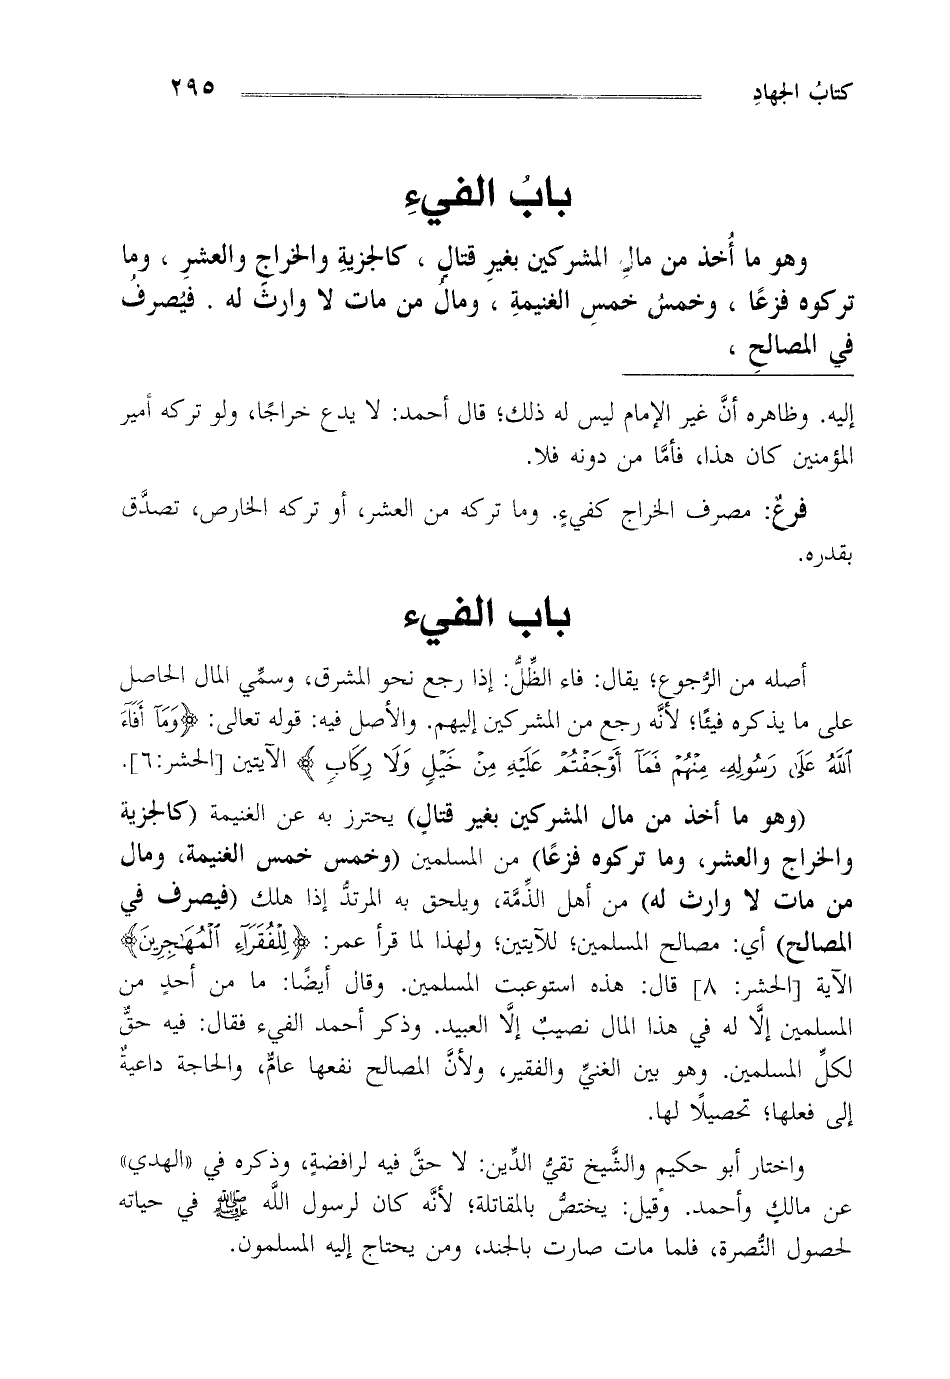 كتابُ الجهادِ ٢٩٥
بابُ الفيءِ
وهو ما أُخذ من مالِ المشركين بغيرِ قتالٍ ، كالجزيةِ والخراجِ والعشرِ ، وما
تركوه فزعًا ، وخمسُ خمسِ الغنيمةِ ، ومالُ من مات لا وارثَ له . فيُصرفُ
في المصالحِ ،
إليه. وظاهره أنَّ غير الإمام ليس له ذلك؛ قال أحمد: لا يدع خراجًا، ولو تركه أمير
المؤمنين كان هذا، فأمَّا من دونه فلا.
فرعٌ: مصرف الخراج كفيءٍ. وما تركه من العشر، أو تركه الخارص، تصدَّق
بقدره.
باب الفيء
أصله من الرُّجوع؛ يقال: فاء الظِّلُّ: إذا رجع نحو المشرق، وسمِّي المال الحاصل
على ما يذكره فيئًا؛ لأنَّه رجع من المشركين إليهم. والأصل فيه: قوله تعالى: ﴿وَمَآ أَفَآءَ
ٱللَّهُ عَلَىٰ رَسُولِهِۦ مِنۡهُمۡ فَمَآ أَوۡجَفۡتُمۡ عَلَيۡهِ مِنۡ خَيۡلٖ وَلَا رِكَابٖ﴾ الآيتين [الحشر:٦].
(وهو ما أخذ من مال المشركين بغير قتالٍ) يحترز به عن الغنيمة (كالجزية
والخراج والعشر، وما تركوه فزعًا) من المسلمين (وخمس خمس الغنيمة، ومال
من مات لا وارث له) من أهل الذِّمَّة، ويلحق به المرتدُّ إذا هلك (فيصرف في
المصالح) أي: مصالح المسلمين؛ للآيتين؛ ولهذا لما قرأ عمر: ﴿لِلۡفُقَرَآءِ ٱلۡمُهَٰجِرِينَ﴾
الآية [الحشر: ٨] قال: هذه استوعبت المسلمين. وقال أيضًا: ما من أحدٍ من
المسلمين إلَّا له في هذا المال نصيبٌ إلَّا العبيد. وذكر أحمد الفيء فقال: فيه حقٌّ
لكلِّ المسلمين. وهو بين الغنيِّ والفقير، ولأنَّ المصالح نفعها عامٌّ، والحاجة داعيةٌ
إلى فعلها؛ تحصيلًا لها.
واختار أبو حكيمٍ والشَّيخ تقيُّ الدِّين: لا حقَّ فيه لرافضةٍ، وذكره في «الهدي»
عن مالكٍ وأحمد. وقيل: يختصُّ بالمقاتلة؛ لأنَّه كان لرسول اللَّه ﷺ في حياته
لحصول النُّصرة، فلما مات صارت بالجند، ومن يحتاج إليه المسلمون.